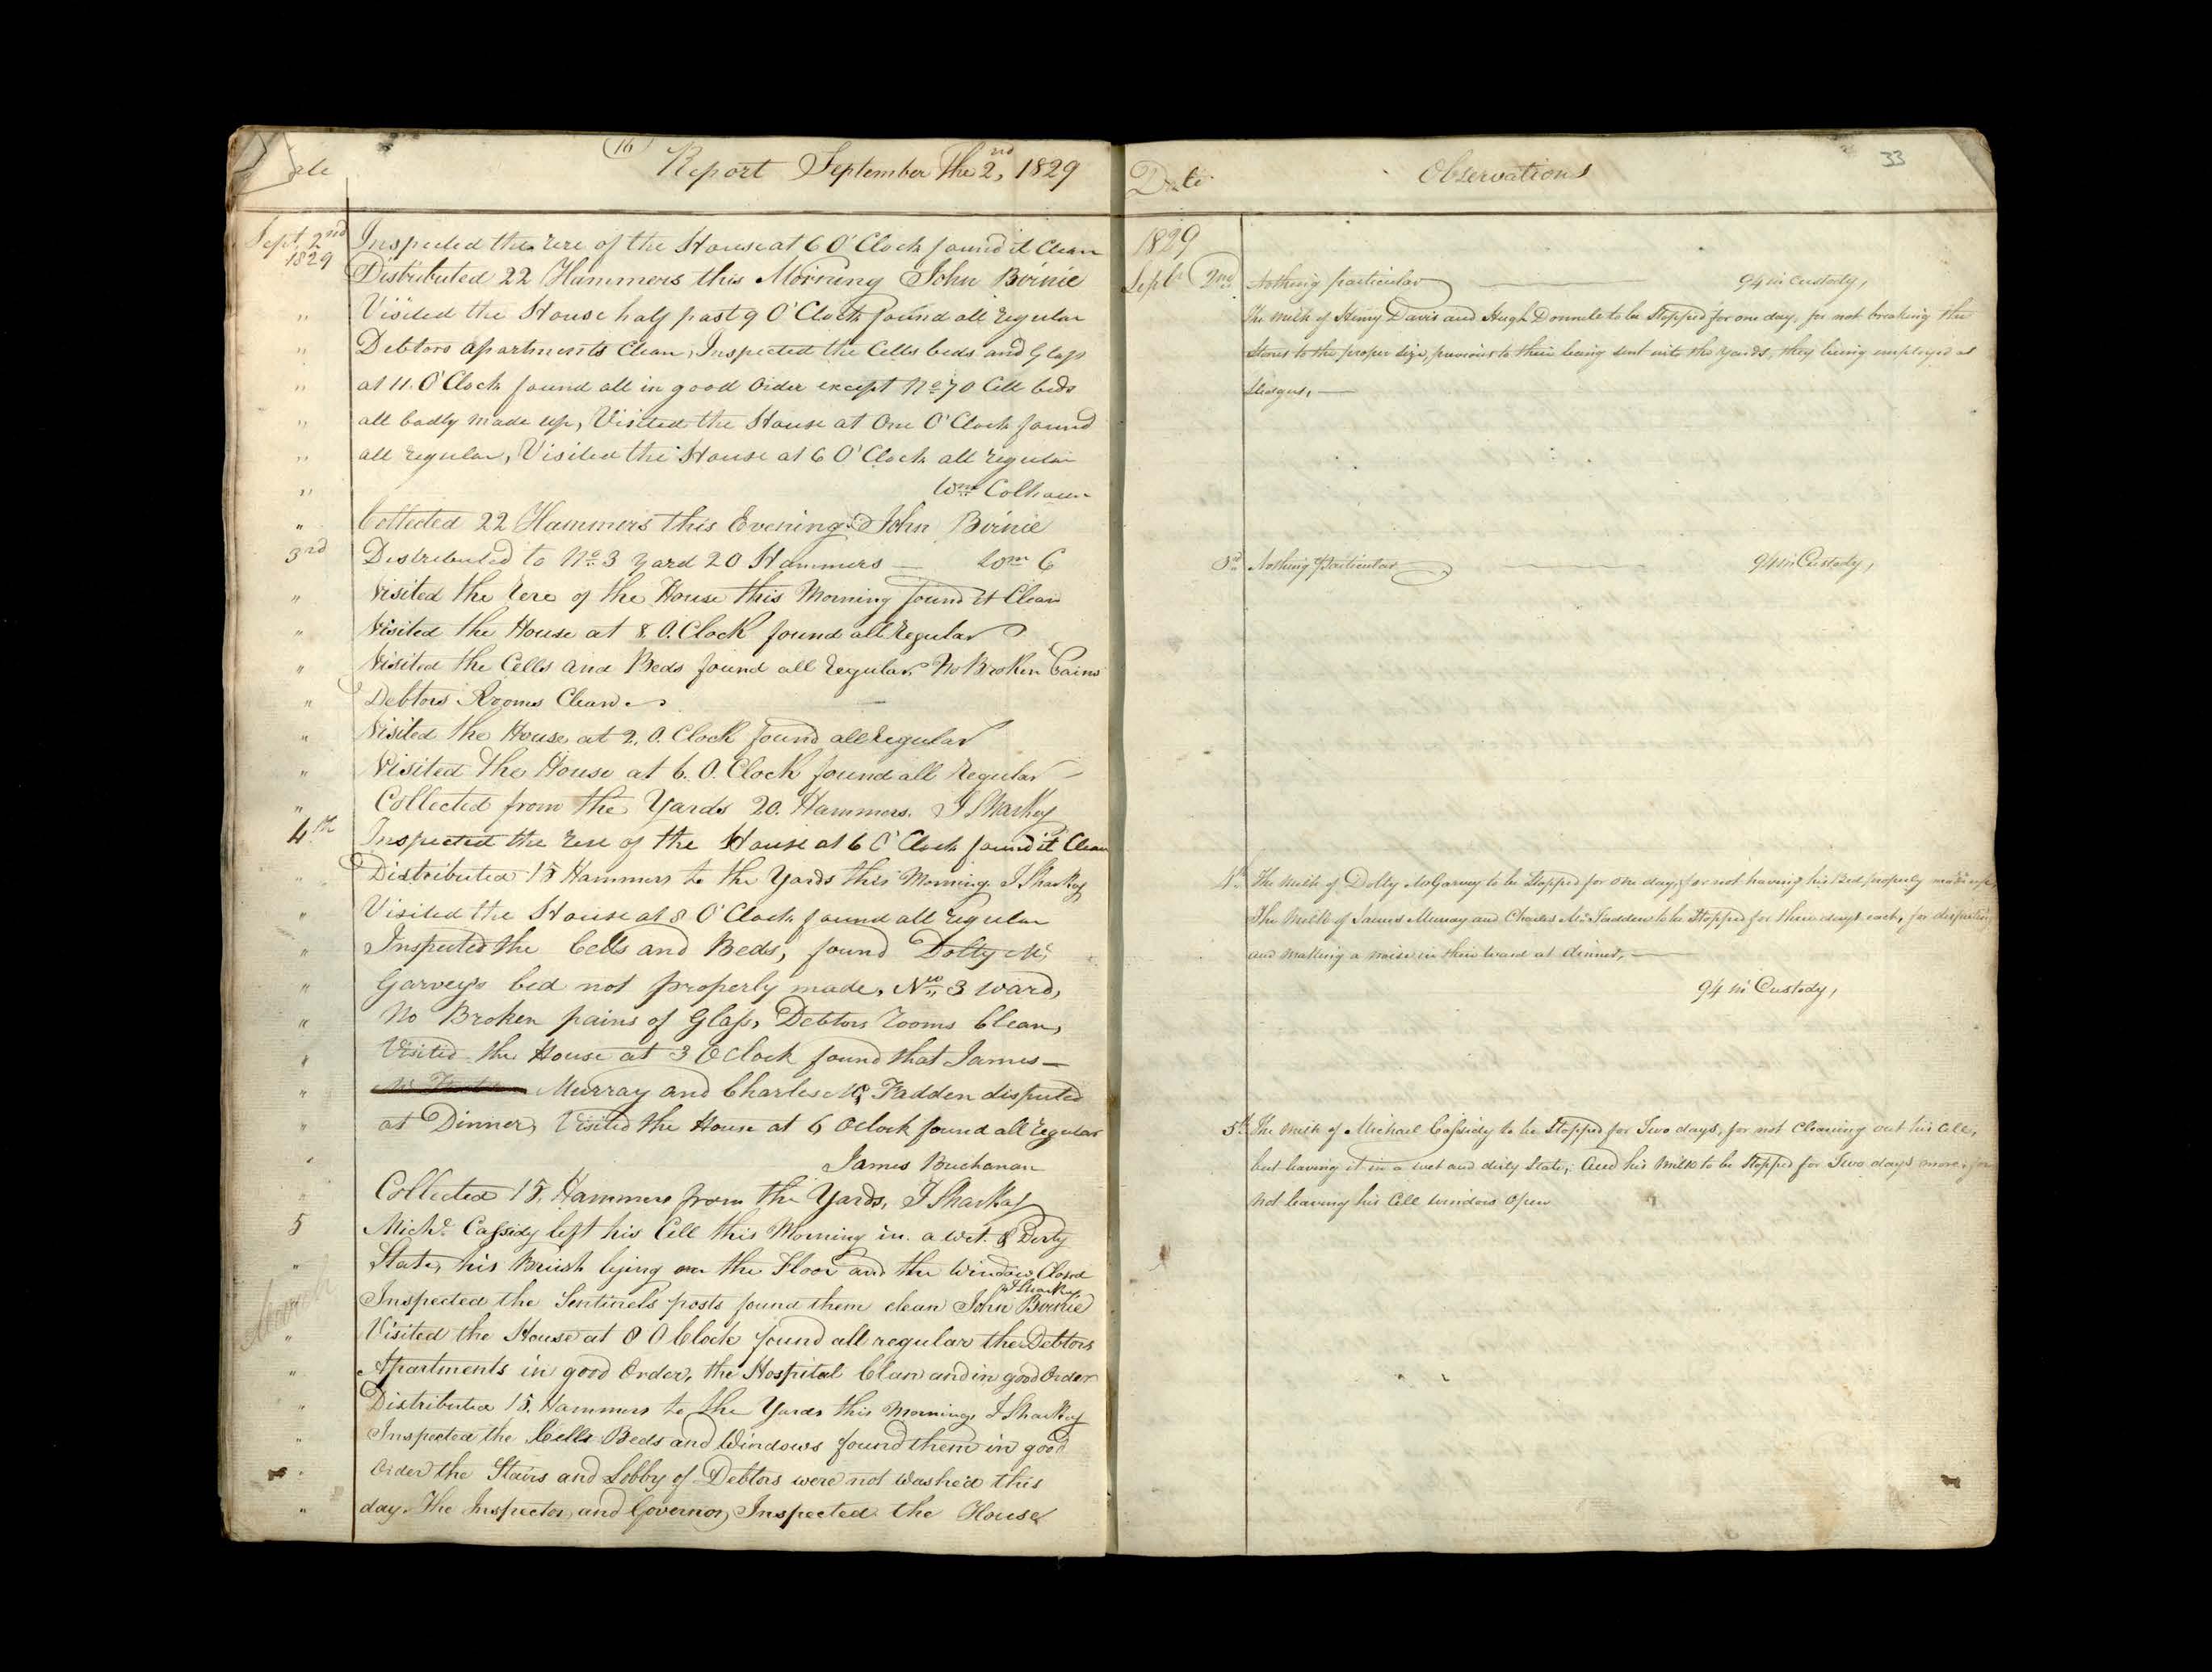 Date
16
Report September the 2nd, 1829
Sept. 2nd
1829
Inspected the rere of the House at 6 O'Clock found it Clean
Distributed 22 Hammers this Morning John Birnie
" Visited the House half past 9 O'Clock found all regular
" Debtors apartments Clean, Inspected the Cells beds and Glass
" at 11. O'Clock found all in good Order except No 70 Cell beds
" all badly made up, Visited the House at One O'Clock found
" all regular, Visited the House at 6 O'Clock all regular
" Wm Colhoun
" Collected 22 Hammers this Evening John Birnie
3rd Distributed to No 3 Yard 20 Hammers —
" Visited the rere of the House this Morning found it Clean
" Visited the House at 8. O. Clock found all regular
" Visited the Cells and Beds found all regular No Broken Pains
" Debtors Rooms Clean
" Visited the House at 2. O. Clock found all regular
" Visited the House at 6. O. Clock found all regular
" Collected from the Yards 20. Hammers. J Sharkey
4th Inspected the rere of the House at 6 O'Clock found it Clean
" Distributed 15 Hammers to the Yards this Morning. J Sharkey
" Visited the House at 8 O'Clock found all regular
" Inspected the Cells and Beds, found Dolty Mc
" Garvey's bed not properly made, No 3 ward,
" No Broken pains of Glass, Debtors rooms Clean,
" Visited the House at 3 OClock found that James —
" Murray and Charles Mc Fadden disputed
" at Dinner, Visited the House at 6 Oclock found all regular
" James Buchanan
" Collected 15. Hammers from the Yards, J Sharkey
5 Michl Cassidy left his Cell this Morning in a wet & Dirty
" State, his Brush lying on the Floor and the Window Closed
J Sharkey
" Inspected the Sentinels posts found them clean John Birnie
" Visited the House at 8 O Clock found all regular the Debtors
" Apartments in good Order, the Hospital Clean and in good Order
" Distributed 15. Hammers to the Yards this Morning, J Sharkey
" Inspected the Cells Beds and Windows found them in good
" Order the Stairs and Lobby of Debtors were not Washed this
" day. The Inspector and Governor, Inspected the House
Date
Observations
33
1829
Septr 2nd Nothing particular — 94 in Custody,
The milk of Henry Davis and Hugh Donnele to be Stopped for one day, for not breaking the
Stones to the proper size, previous to their being sent into the Yards, they being employed at
Sledges, —
3rd Nothing Particular — 94 in Custody,
4th The milk of Dolty McGarvey to be Stopped for one day, for not having his Bed properly made up,
The Milk of James Murray and Charles McFadden to be Stopped for three days each, for disputing
and making a noise in their ward at dinner, —
94 in Custody,
5th The milk of Michael Cassidy to be Stopped for Two days, for not Cleaning out his Cell,
but leaving it in a wet and dirty State, And his Milk to be Stopped for Two days more, for
not leaving his Cell window Open